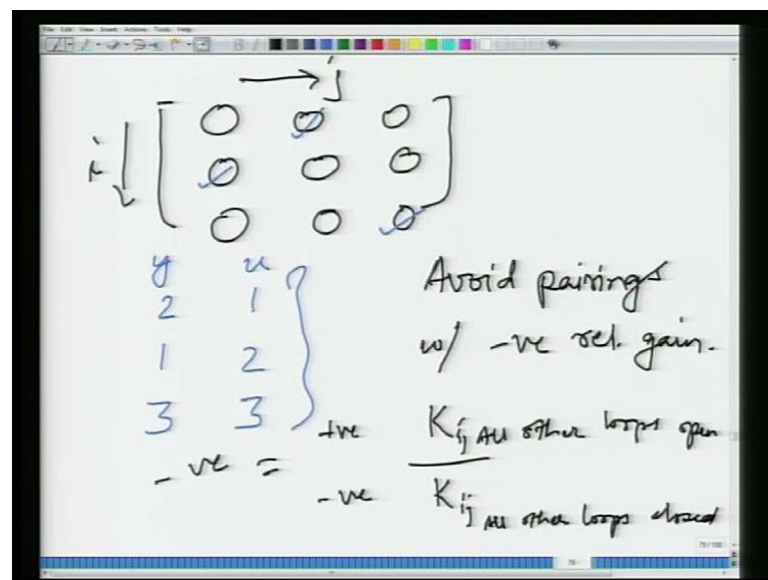 File Edit View Insert Actions Tools Help
→ j
i ↓
y u
2 1
1 2
3 3
Avoid pairings
w/ -ve rel. gain.
-ve = +ve K ij All other loops open
-ve K ij All other loops closed